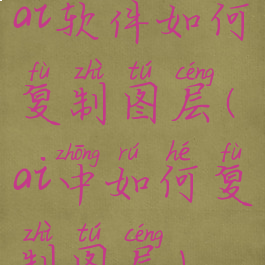 ai软件如何
fù zhì tú céng
复制图层(
zhōng rú hé fù
ai中如何复
zhì tú céng
制图层)